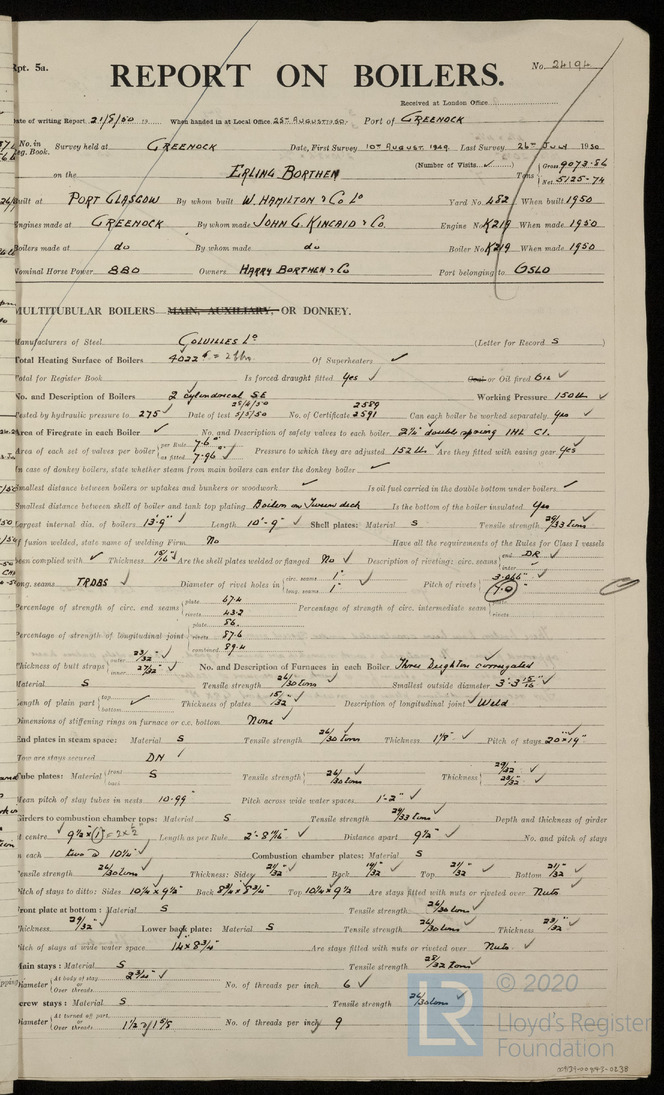 Rpt. 5a.
No. 24194
REPORT ON BOILERS.
Received at London Office
Date of writing Report 21/8/50 19 When handed in at Local Office 25TH AUGUST 1950. Port of GREENOCK
No. in Reg. Book. Survey held at GREENOCK Date, First Survey 10TH AUGUST. 1949. Last Survey 26TH JULY 1950
on the ERLING BORTHEN (Number of Visits ) Tons Gross 9073.86 Net 5125.74
Built at PORT GLASGOW By whom built W. HAMILTON & Co Ld Yard No. 482 When built 1950
Engines made at GREENOCK By whom made JOHN G. KINCAID & Co. Engine No. K219 When made 1950
Boilers made at do By whom made do Boiler No. K219 When made 1950
Nominal Horse Power 880 Owners HARRY BORTHEN & Co Port belonging to OSLO
MULTITUBULAR BOILERS MAIN, AUXILIARY, OR DONKEY.
Manufacturers of Steel COLVILLES Ld (Letter for Record S )
Total Heating Surface of Boilers 4022 Of Superheaters ✓
Total for Register Book Is forced draught fitted Yes ✓ Coal or Oil fired Oil ✓
No. and Description of Boilers 2 cylindrical SE Working Pressure 150 lb ✓
Tested by hydraulic pressure to 275 ✓ Date of test 28/4/50 5/5/50 No. of Certificate 2589 2591 Can each boiler be worked separately Yes ✓
Area of Firegrate in each Boiler ✓ No. and Description of safety valves to each boiler 2¼" double spring IHL CI.
Area of each set of valves per boiler per Rule 7.6 as fitted 7.96 ✓ Pressure to which they are adjusted 152 lb ✓ Are they fitted with easing gear Yes ✓
In case of donkey boilers, state whether steam from main boilers can enter the donkey boiler ✓
Smallest distance between boilers or uptakes and bunkers or woodwork ✓ Is oil fuel carried in the double bottom under boilers ✓
Smallest distance between shell of boiler and tank top plating Boilers on Tween deck Is the bottom of the boiler insulated Yes
Largest internal dia. of boilers 13'-9" ✓ Length 10'-9" ✓ Shell plates: Material S Tensile strength 29/33 tons ✓
If fusion welded, state name of welding Firm No Have all the requirements of the Rules for Class I vessels
been complied with ✓ Thickness 15/16" ✓ Are the shell plates welded or flanged No ✓ Description of riveting: circ. seams end DR ✓ inter
long. seams TRDBS ✓ Diameter of rivet holes in circ. seams 1" long. seams 1" ✓ Pitch of rivets 3.066" 7.0
Percentage of strength of circ. end seams plate 67.4 rivets 43.2 Percentage of strength of circ. intermediate seam plate rivets
Percentage of strength of longitudinal joint plate 86. rivets 87.6 combined 89.4
Thickness of butt straps outer 23/32 inner 27/32 ✓ No. and Description of Furnaces in each Boiler Three Deighton corrugated
Material S Tensile strength 26/30 tons ✓ Smallest outside diameter 3'-3 15/16" ✓
Length of plain part top bottom ✓ Thickness of plates 15/32" ✓ Description of longitudinal joint Weld
Dimensions of stiffening rings on furnace or c.c. bottom None ✓
End plates in steam space: Material S Tensile strength 26/30 tons ✓ Thickness 1⅛" ✓ Pitch of stays 20"×19" ✓
How are stays secured DN ✓
Tube plates: Material front back S Tensile strength 26/30 tons ✓ Thickness 29/32 23/32 ✓
Mean pitch of stay tubes in nests 10.99" Pitch across wide water spaces 1'-2" ✓
Girders to combustion chamber tops: Material S Tensile strength 29/33 tons ✓ Depth and thickness of girder
at centre 9½"×(1)"=2×½" Length as per Rule 2'-8 11/16" ✓ Distance apart 9½" ✓ No. and pitch of stays
in each two @ 10¼" ✓ Combustion chamber plates: Material S
Tensile strength 26/30 tons ✓ Thickness: Sides 21/32" Back 19/32" ✓ Top 21/32" ✓ Bottom 21/32" ✓
Pitch of stays to ditto: Sides 10¼"×9½" Back 8¾"×8¾" Top 10¼"×9½ Are stays fitted with nuts or riveted over Nuts ✓
Front plate at bottom: Material S Tensile strength 26/30 tons ✓
Thickness 29/32" ✓ Lower back plate: Material S Tensile strength 26/30 tons ✓ Thickness 23/32" ✓
Pitch of stays at wide water space 14"×8¾" ✓ Are stays fitted with nuts or riveted over Nuts ✓
Main stays: Material S Tensile strength 28/32 tons ✓
Diameter At body of stay or Over threads 2¾" ✓ No. of threads per inch 6 ✓
Screw stays: Material S Tensile strength 26/30 tons ✓
Diameter At turned off part or Over threads 1½ & 1⅝ No. of threads per inch 9
LR
© 2020
Lloyd's Register
Foundation